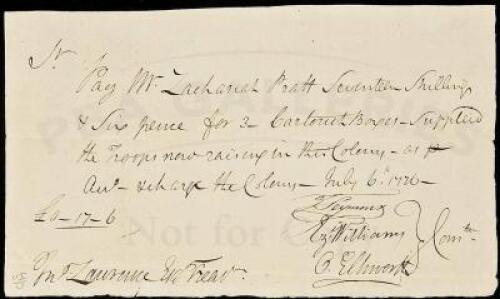 Sr.
Pay Mr. Zachariah Pratt Seventeen Shillings
& Six pence for 3 - Cartouch Boxes - Supplied
the Troops now raising in this Colony - as pr
Acct - & charge the Colony - July 6th 1776 -
£0 - 17 - 6
T Seymour
Ezl Williams } Comtee
O. Ellsworth
Jno Lawrence Esqr Treasr.
Not for